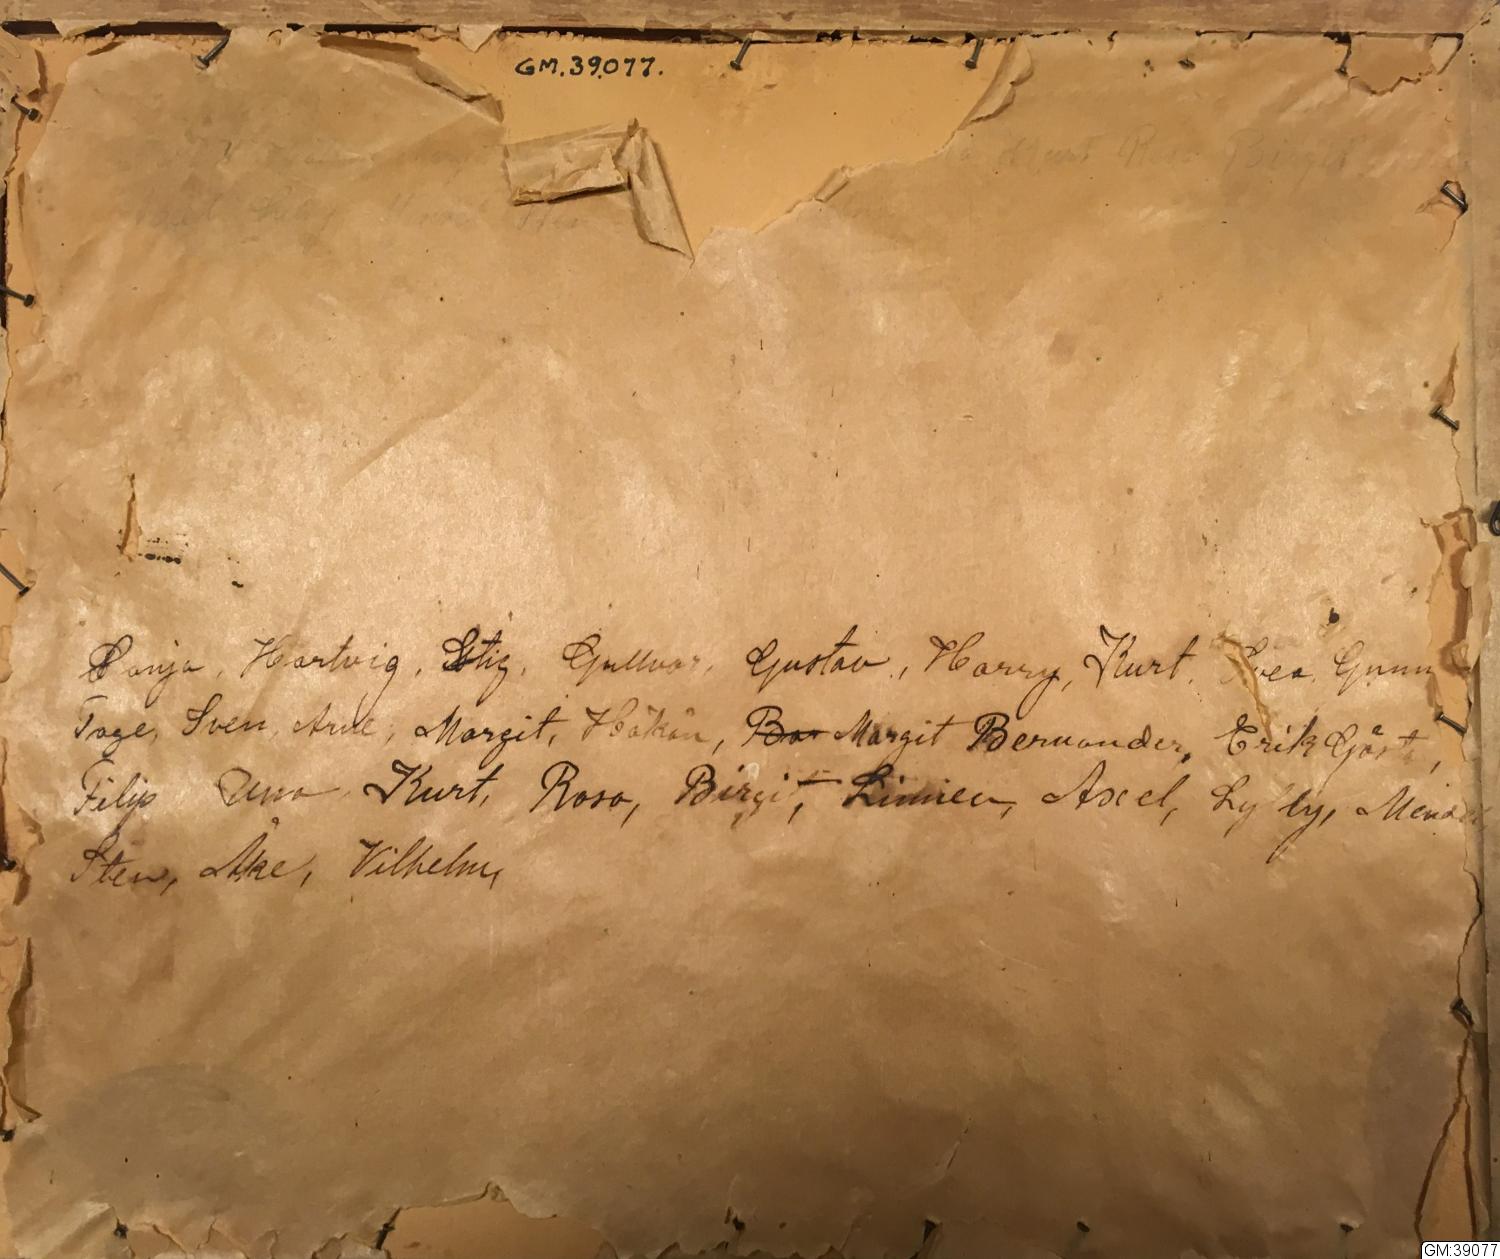 GM.39077.
Kurt Rosa Birgit
Sonja, Hartvig, Stig, Gullvor, Gustav, Harry, Kurt, Svea, Gunn
Tage, Sven, Arne, Margit, Håkan, Margit Bernander, Erik Göst,
Filip Una Kurt, Rosa, Birgit, Linnea, Axel, Lylly,
Sten, Åke, Vilhelm,
GM:39077